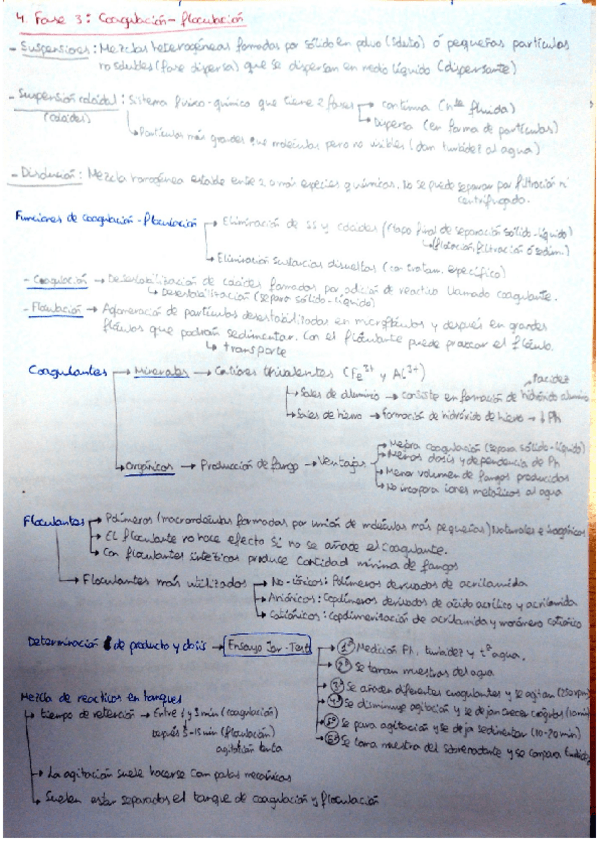 4. Fase 3: Coagulación-floculación
- Suspensiones: Mezclas heterogéneas formadas por sólido en polvo (soluto) ó pequeñas partículas
no solubles (fase dispersa) que se dispersan en medio líquido (dispersante)
- Suspensión coloidal: Sistema físico-químico que tiene 2 fases → continua (nte fluida)
(coloides) → Dispersa (en forma de partículas)
→ Partículas más grandes que moléculas pero no visibles (dan turbidez al agua)
- Disolución: Mezcla homogénea estable entre 2 o más especies químicas. No se puede separar por filtración ni
centrifugado.
Funciones de coagulación-floculación → Eliminación de SS y coloides (Etapa final de separación sólido-líquido)
→ flotación, filtración ó sedim)
→ Eliminación sustancias disueltas (con tratam. específico)
- Coagulación → Desestabilización de coloides formados por adición de reactivo llamado coagulante.
→ Desestabilización (separa sólido-líquido)
- Floculación → Aglomeración de partículas desestabilizadas en microflóculos y después en grandes
flóculos que podrán sedimentar. Con el floculante puede el flóculo.
→ transporte
Coagulantes → Minerales → Cationes trivalentes (Fe3+ y Al3+)
→ Sales de aluminio → consiste en formación de hidróxido aluminio
→ Sales de hierro → Formación de hidróxido de hierro → ↓ Ph
→ Orgánicos → Producción de fango → Ventajas → Mejora coagulación (separa sólido-líquido)
→ Menos dosis y dependencia de Ph
→ Menor volumen de fangos producidos
→ No incorpora iones metálicos al agua
Floculantes → Polímeros (macromoléculas formadas por unión de moléculas más pequeñas) Naturales e inorgánicos
→ El floculante no hace efecto si no se añade el coagulante.
→ Con floculantes sintéticos produce cantidad mínima de fangos
→ Floculantes más utilizados → No-iónicos: Polímeros derivados de acrilamida
→ Aniónicos: Copolímeros derivados de ácido acrílico y acrilamida
→ Catiónicos: copolimerización de acrilamida y monómero catiónico
Determinación de producto y dosis → Ensayo Jar-Test → 1º Medición Ph, turbidez y tª agua.
→ 2º Se toman muestras del agua
→ 3º Se añaden diferentes coagulantes y se agitan (250 rpm)
→ 4º Se disminuye agitación y se dejan crecer coágulos (10 min)
→ 5º Se para agitación y se deja sedimentar (10-20 min)
→ 6º Se toma muestra del sobrenadante y se compara turbidez
Mezcla de reactivos en tanques
→ tiempo de retención → Entre 1 y 3 min (coagulación)
Después 5-15 min (floculación)
agitación lenta
→ La agitación suele hacerse con palas mecánicas
→ Suelen estar separados el tanque de coagulación y floculación